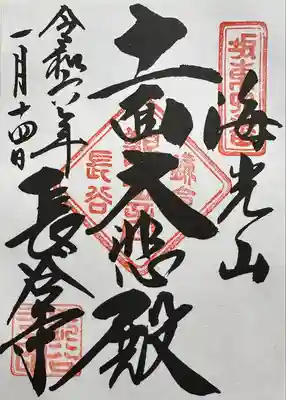 海光山
十一面大悲殿
長谷寺
令和六年
一月十四日
長谷
鎌倉